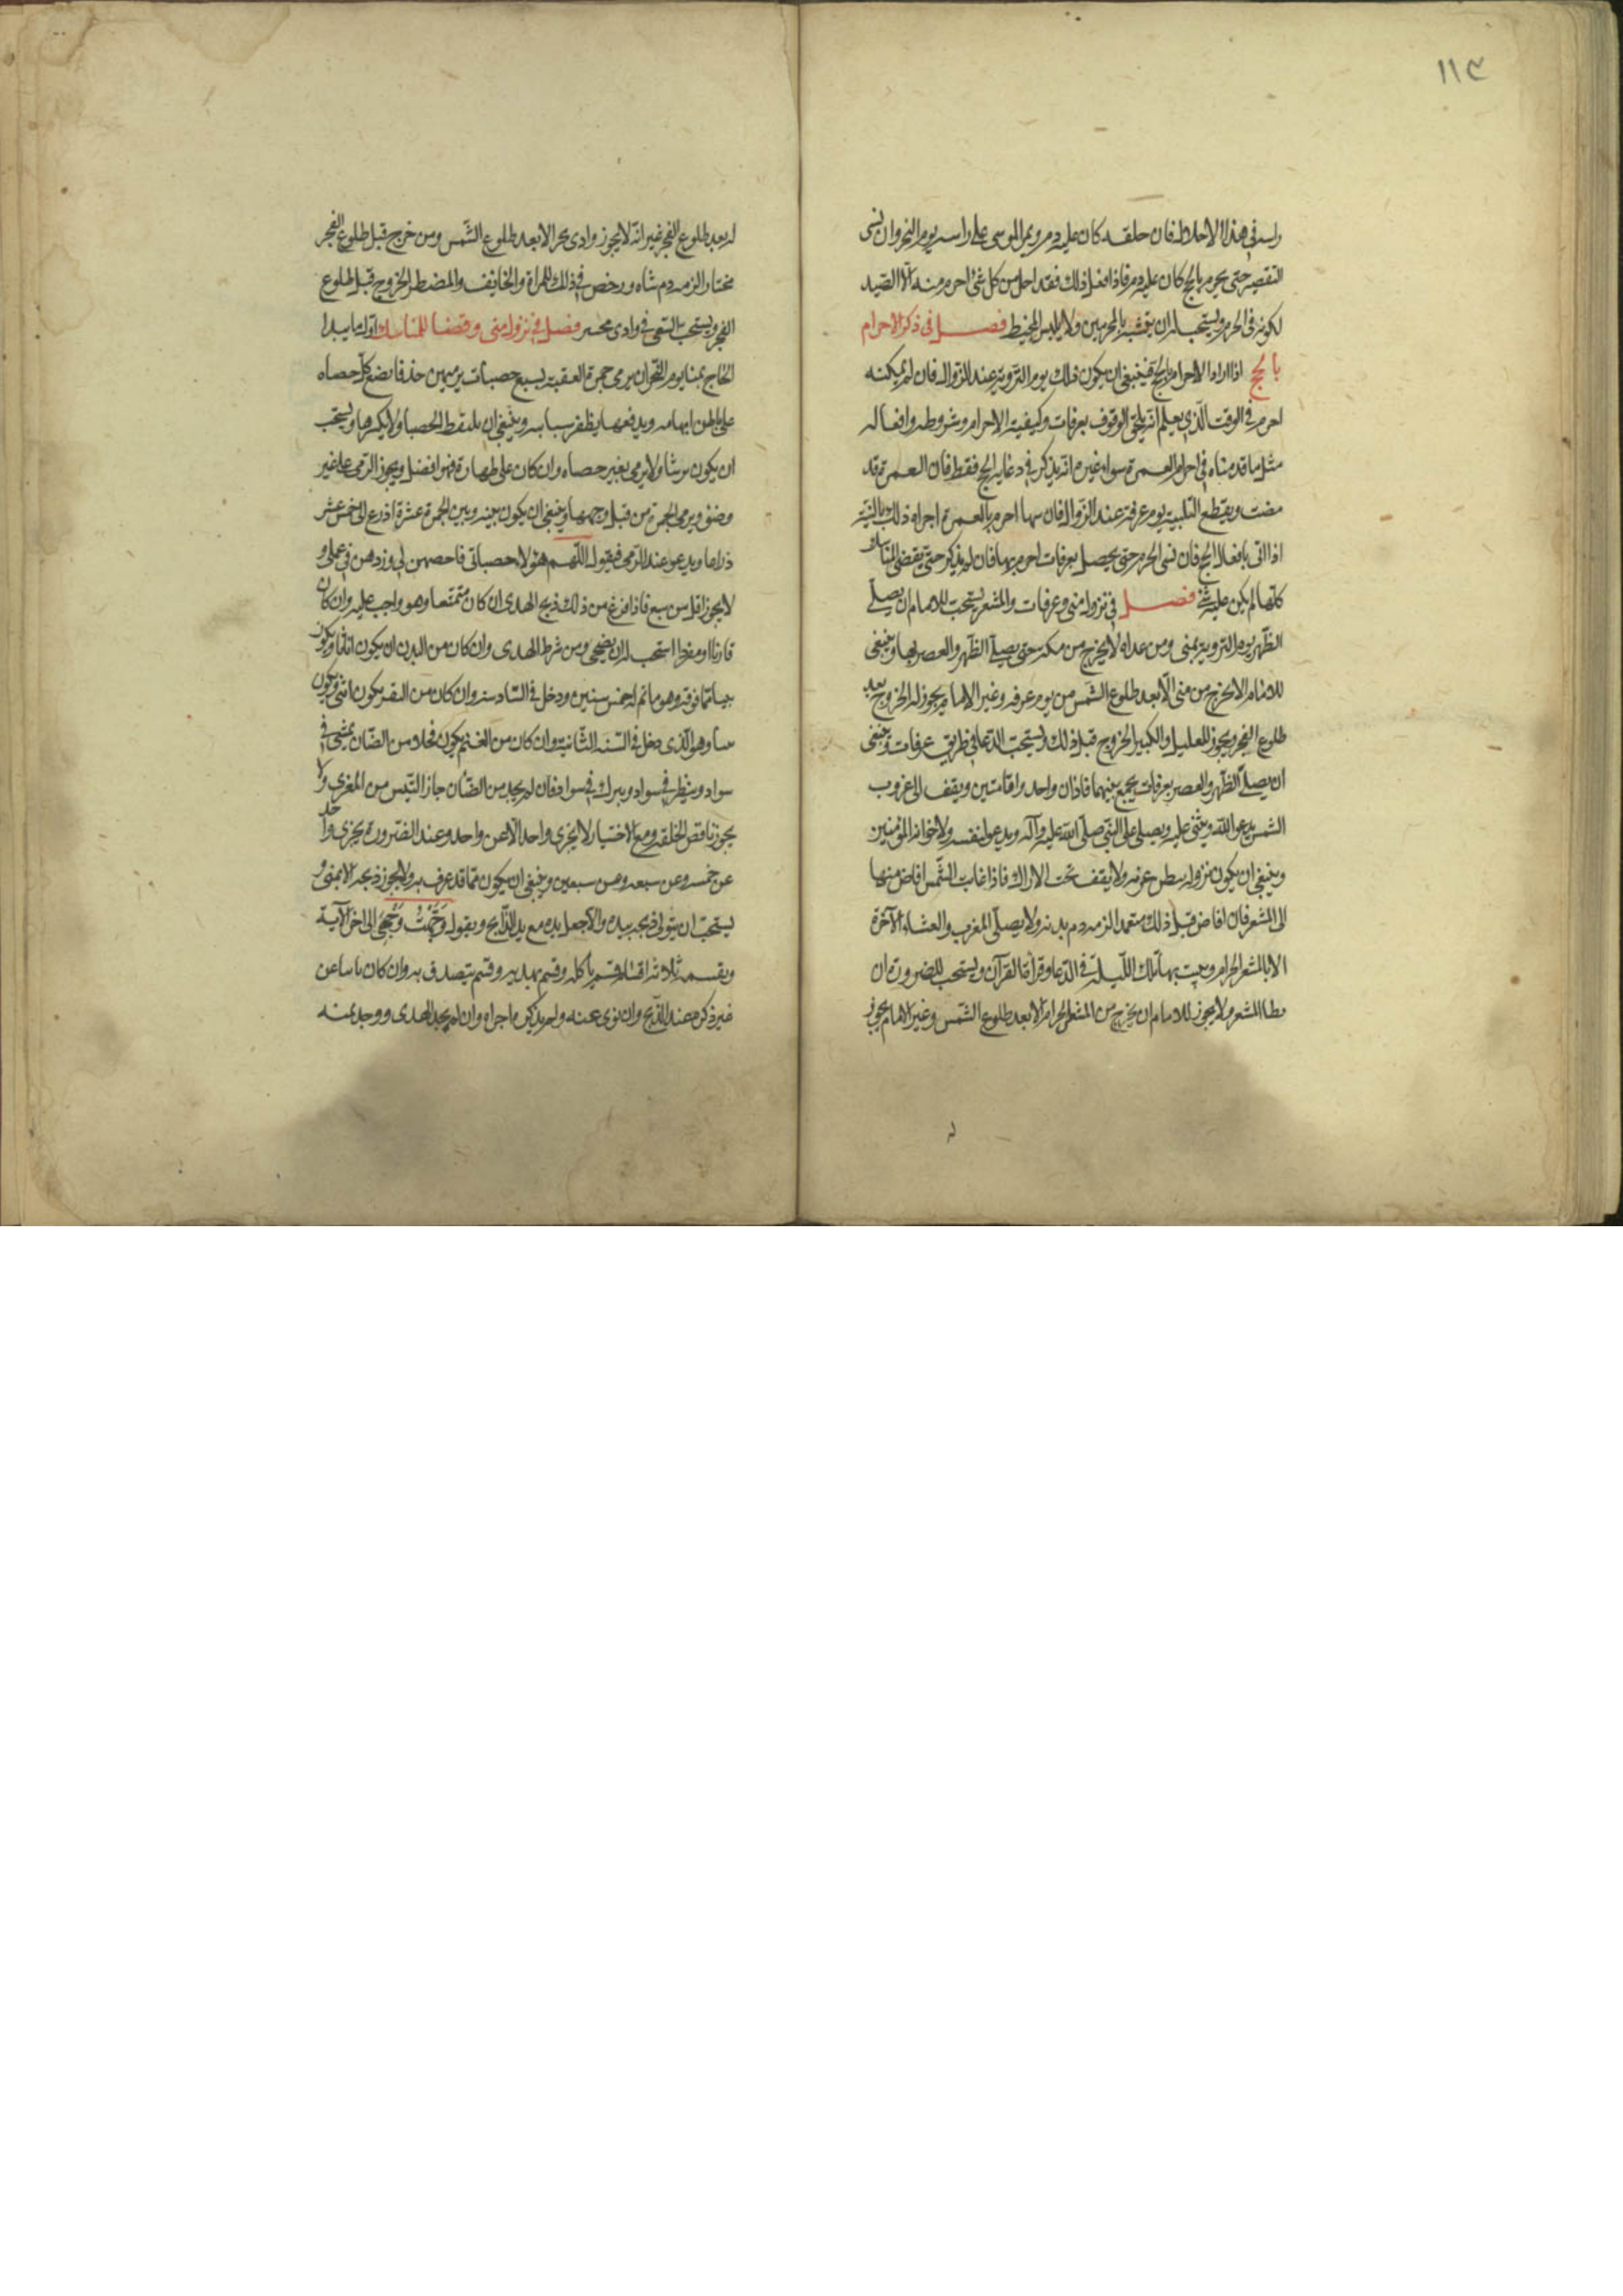 ١١٣
راسه في هذا الاحلال فان حلقه كان عليه دم ويمر الموسى على راسه يوم النحر وان نسى
التقصير حتى يحرم بالحج كان عليه دم فاذا فعل ذلك فقد احل من كل شئ احرم منه الا الصيد
لكونه في الحرم ويستحب له ان يتشبه بالمحرمين ولا يلبس المخيط فصل في ذكر الاحرام
بالحج اذا اراد الاحرام بالحج فينبغي ان يكون ذلك يوم التروية عند الزوال فان لم يمكنه
احرم في الوقت الذي يعلم انه يلحق الوقوف بعرفات وكيفية الاحرام وشروطه وافعاله
مثل ما قدمناه في احرام العمرة سواء غير انه يذكر في دعائه الحج فقط فان العمرة قد
مضت ويقطع التلبية يوم عرفة عند الزوال فان سها احرم بالعمرة اجزاه ذلك بالنية
اذا اتى بافعال الحج فان نسى الاحرام حتى يحصل بعرفات احرم بها فان لم يذكر حتى يقضى المناسك
كلها لم يكن عليه شئ فصل في نزول منى وعرفات والمشعر يستحب للامام ان يصلى
الظهر يوم التروية بمنى ومن عداه لا يخرج من مكة حتى يصلى الظهر والعصر بها وينبغى
للامام الا يخرج من منى الا بعد طلوع الشمس من يوم عرفه وغير الامام يجوز له الخروج بعد
طلوع الفجر ويجوز للعليل والكبير الخروج قبل ذلك ويستحب الدعا في طريق عرفات وينبغى
ان يصلى الظهر والعصر بعرفات يجمع بينهما فاذان واحد واقامتين ويقف الى غروب
الشمس يدعو الله ويثنى عليه ويصلى على النبى صلى الله عليه وآله ويدعو لنفسه ولاخوانه المؤمنين
وينبغى ان يكون نزوله بطن عرنه ولا يقف تحت الاراك فاذا غابت الشمس افاض منها
الى المشعر فان افاض قبل ذلك متعمدا لزمه دم بدنه ولا يصلى المغرب والعشاء الآخرة
الا بالمشعر الحرام ويبيت بها تلك الليلة في الدعا وقراة القرآن ويستحب للضرورة ان
يطا المشعر ولا يجوز للامام ان يخرج من المشعر الحرام الا بعد طلوع الشمس وغير الامام يجوز
له
له بعد طلوع الفجر غير انه لا يجوز وادى محسر الا بعد طلوع الشمس ومن خرج قبل طلوع الفجر
مختارا لزمه دم شاه ورخص في ذلك للمراة والخايف والمضطر الخروج قبل طلوع
الفجر ويستحب السعى في وادى محسر فصل في نزول منى وقضا المناسك اول ما يبدا
الحاج بمنا يوم النحر ان يرمى جمرة العقبة بسبع حصيات يرميهن حذفا يضع كل حصاه
على باطن ابهامه ويدفعها بظفر سبابه وينبغى ان يلتقط الحصا ولا يكسرها ويستحب
ان يكون برشا ولا يرمى بغير حصاه وان كان على طهارة فهو افضل ويجوز الرمى على غير
وضؤ ويرمى الجمرة من قبل وجهها وينبغى ان يكون بينه وبين الجمرة عشرة اذرع الى خمس عشر
ذراعا ويدعو عند الرمى فيقول اللهم هؤلاء حصياتى فاحصهن لى وزدهن في عملى و
لا يجوز اقل من سبع فاذا فرغ من ذلك ذبح الهدى ان كان متمتعا وهو واجب عليه وان كان
قارنا او مفردا استحب له ان يضحى ومن شرط الهدى وان كان من البدن ان يكون اناثا ويكون
ثنيا فما فوقه وهو ما تم له خمس سنين ودخل في السادسة وان كان من البقر يكون انثى ويكون
مسنا وهو الذى دخل في السنة الثانية وان كان من الغنم يكون فحلا من الضان يمشى في
سواد وينظر في سواد ويبرك في سواد فان لم يجد من الضان جاز التيس من المعزى ولا
يجوز ناقص الخلقه ومع الاختيار لا يجزى واحد الا عن واحد وعند الضرورة يجزى واحد
عن خمسه وعن سبعه وعن سبعين وينبغى ان يكون مما قد عرف به ولا يجوز ذبحه الا بمنى و
يستحب ان يتولى ذبحه بيده والا جعل يده مع يد الذابح ويقول وجهت وجهى الى اخر الآية
ويقسمه ثلاثه اقسام قسم ياكله وقسم يهديه وقسم يتصدق به وان كان ناسيا عن
غير ذكره عند الذبح وان نوى عنه ولم يذكره اجزاه وان لم يجد الهدى ووجد ثمنه